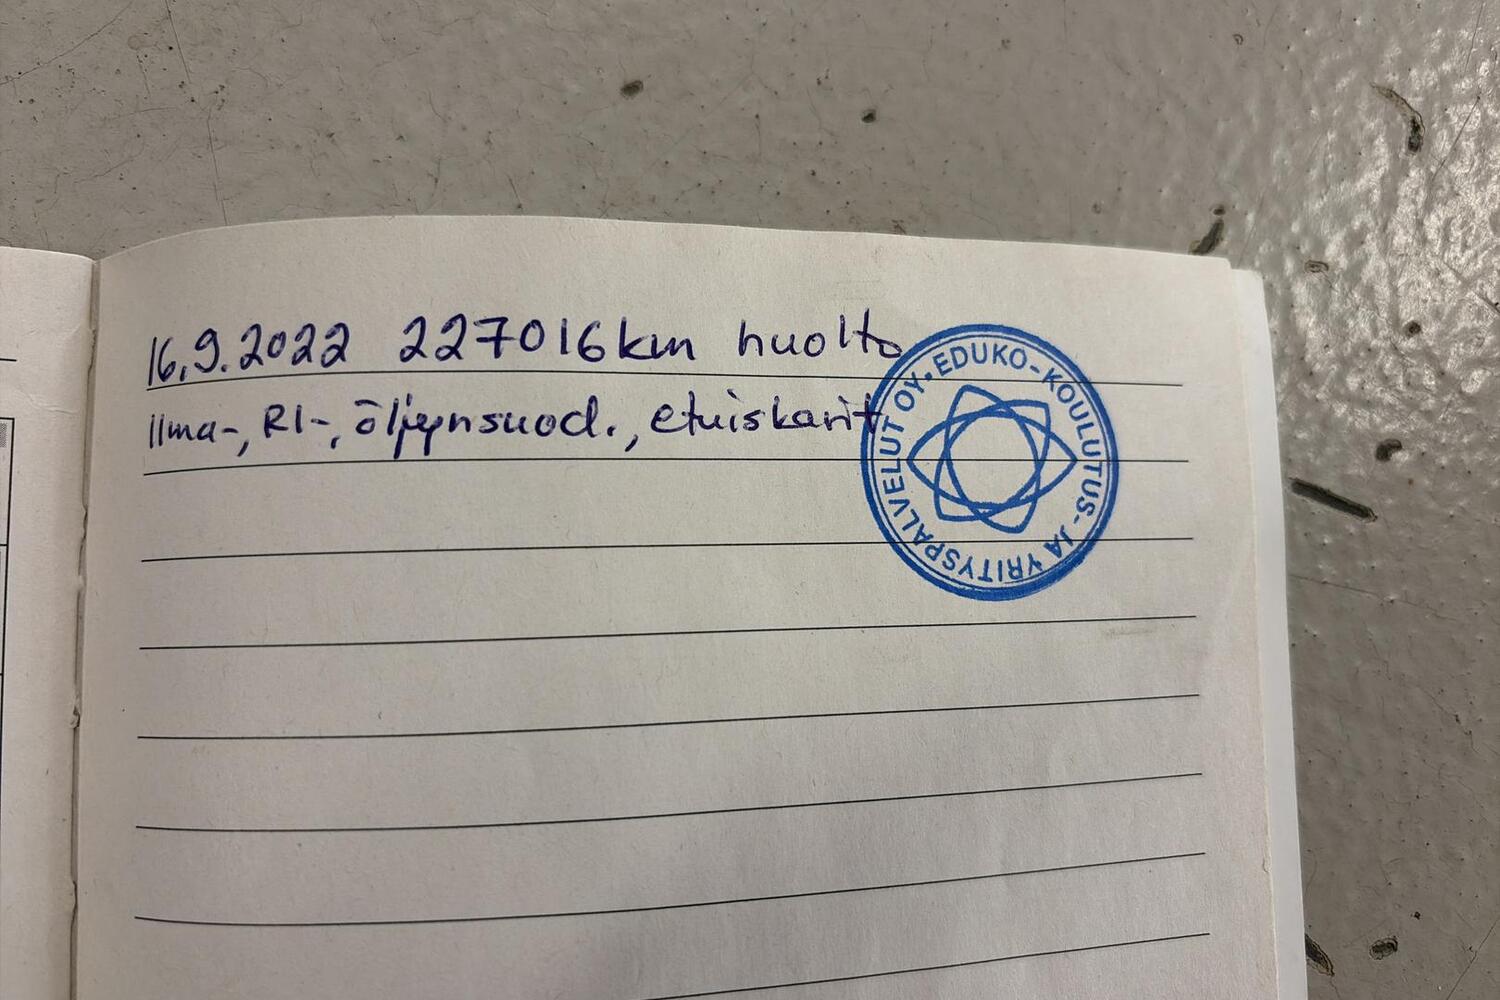 16.9.2022 227016km huolto
Ilma-, RI-, öljynsuod., etuiskarit
EDUKO-KOULUTUS- JA YRITYSPALVELUT OY.